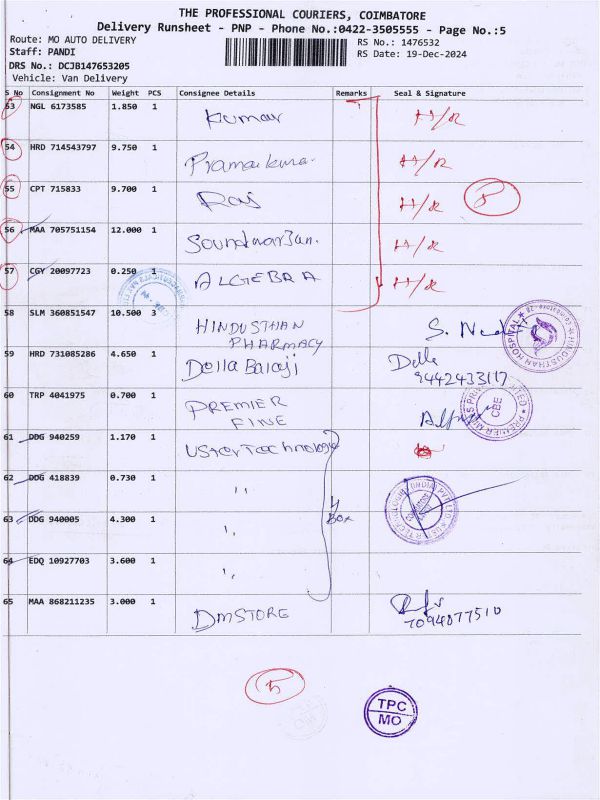 THE PROFESSIONAL COURIERS, COIMBATORE
Delivery Runsheet - PNP - Phone No.:0422-3505555 - Page No.:5
Route: MO AUTO DELIVERY RS No.: 1476532
Staff: PANDI RS Date: 19-Dec-2024
DRS No.: DCJB147653205
Vehicle: Van Delivery
S No Consignment No Weight PCS Consignee Details Remarks Seal & Signature
53 NGL 6173585 1.850 1 Kumar H/R
54 HRD 714543797 9.750 1 H/R
55 CPT 715833 9.700 1 Raj H/R 5
56 MAA 705751154 12.000 1 H/R
57 CGY 20097723 0.250 1 ALGEBRA H/R
58 SLM 360851547 10.500 3 HINDUSTHAN PHARMACY
HINDUSTHAN HOSPITAL
59 HRD 731085286 4.650 1 Della Balaji Della
9442433117
60 TRP 4041975 0.700 1 PREMIER FINE
CBE
61 DDG 940259 1.170 1 Uster Technologie
62 DDG 418839 0.730 1 "
63 DDG 940005 4.300 1 " 4 Box
64 EDQ 10927703 3.600 1 "
65 MAA 868211235 3.000 1 DMSTORE
7094077510
5
TPC
MO